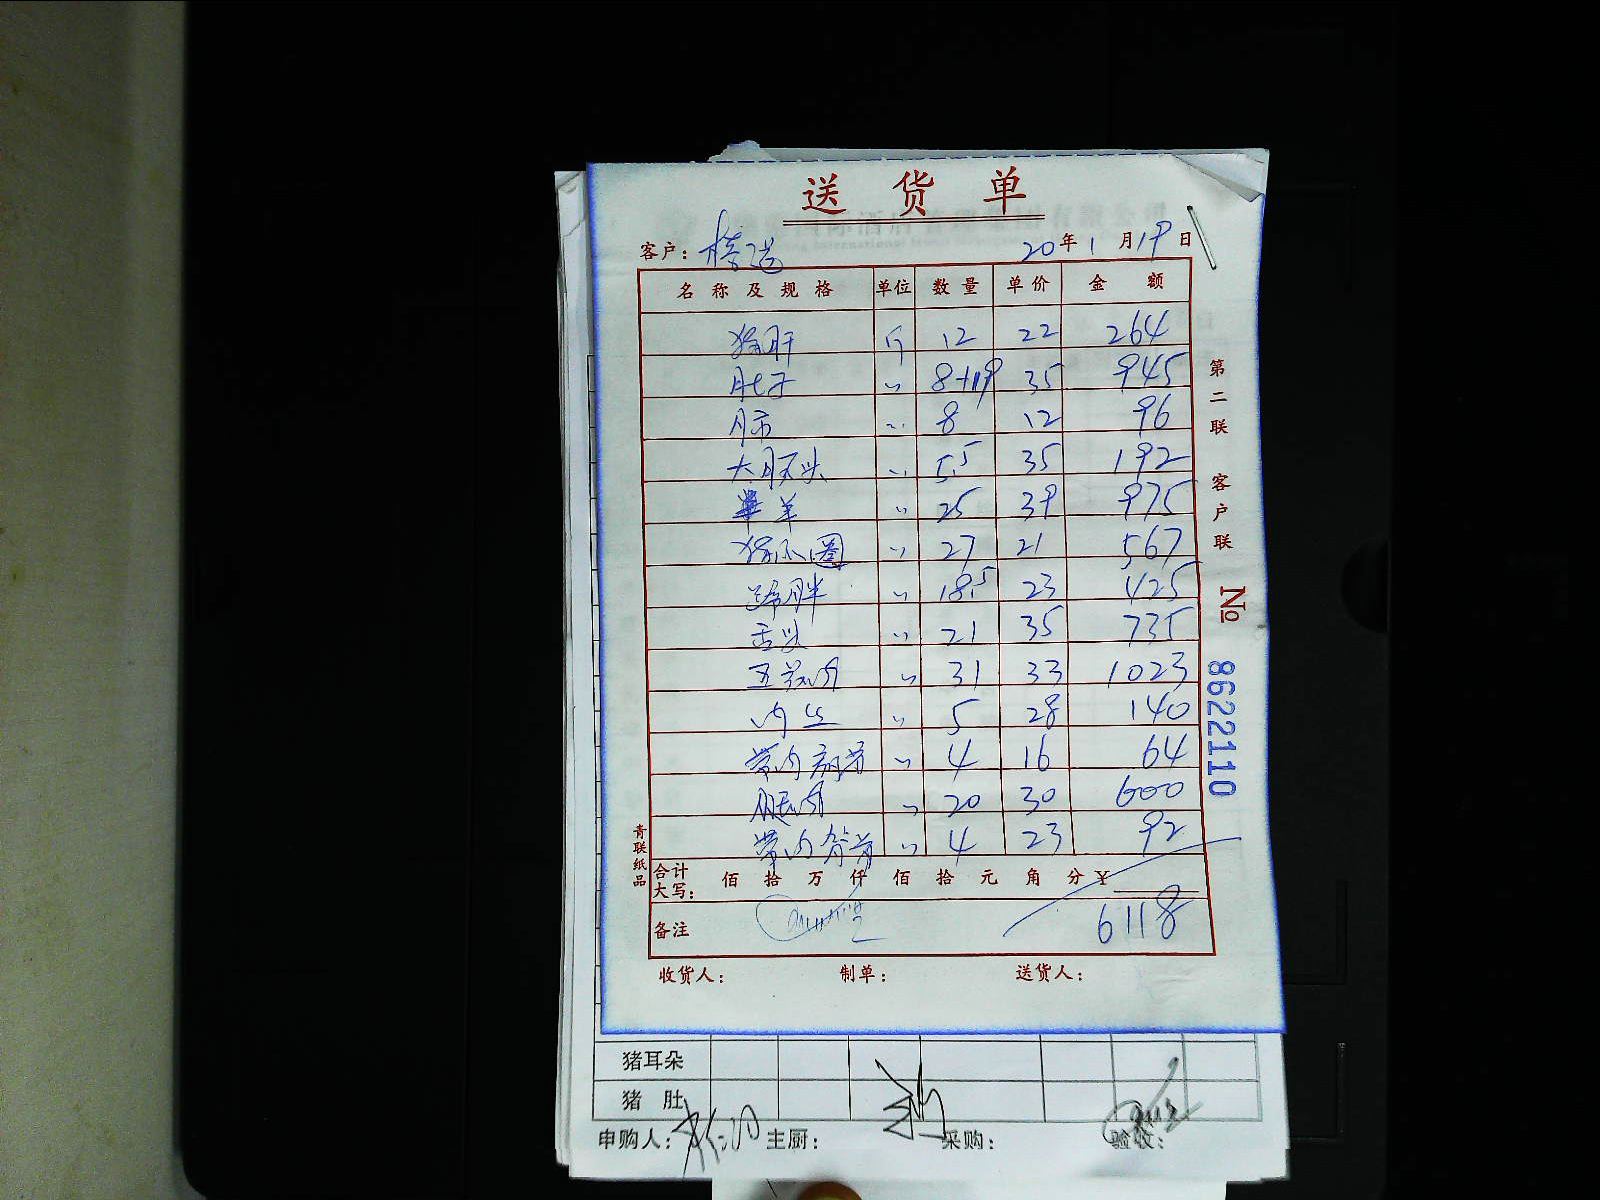 送货单
客户： 20年1月19日
名称及规格 单位 数量 单价 金额
猪肝 斤 12 22 264
肚子 〃 8+19 35 945
肺 〃 8 12 96
大肠头 〃 5.5 35 192
羊 〃 25 39 975
猪小圈 〃 27 21 567
蹄胖 〃 18.5 23 425
舌头 〃 21 35 735
五花肉 〃 31 33 1023
肉丝 〃 5 28 140
带肉 〃 4 16 64
腿肉 〃 20 30 600
带肉 〃 4 23 92
合计大写： 佰拾万仟佰拾元角分 ¥
备注 6118
收货人： 制单： 送货人：
第二联 客户联
No 8622110
青联纸品
猪耳朵
猪肚
申购人： 主厨： 采购： 验收：